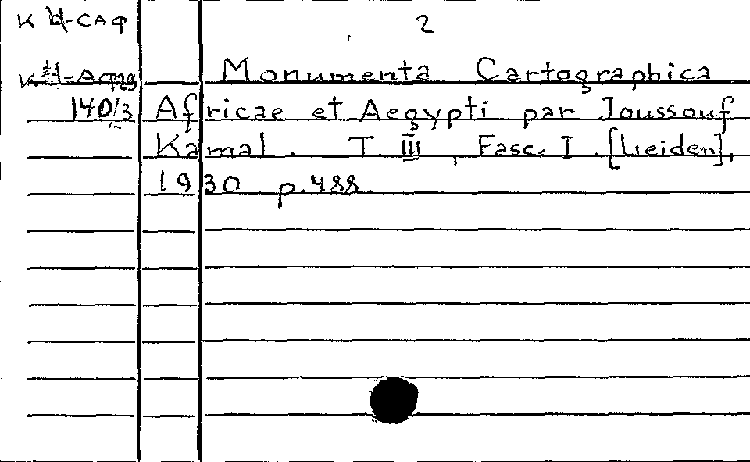 2
Monumenta Cartographica
140/3 Africae et Aegypti par Joussouf
Kamal. T III, Fasc. I. [Leiden],
1930 p. 488.